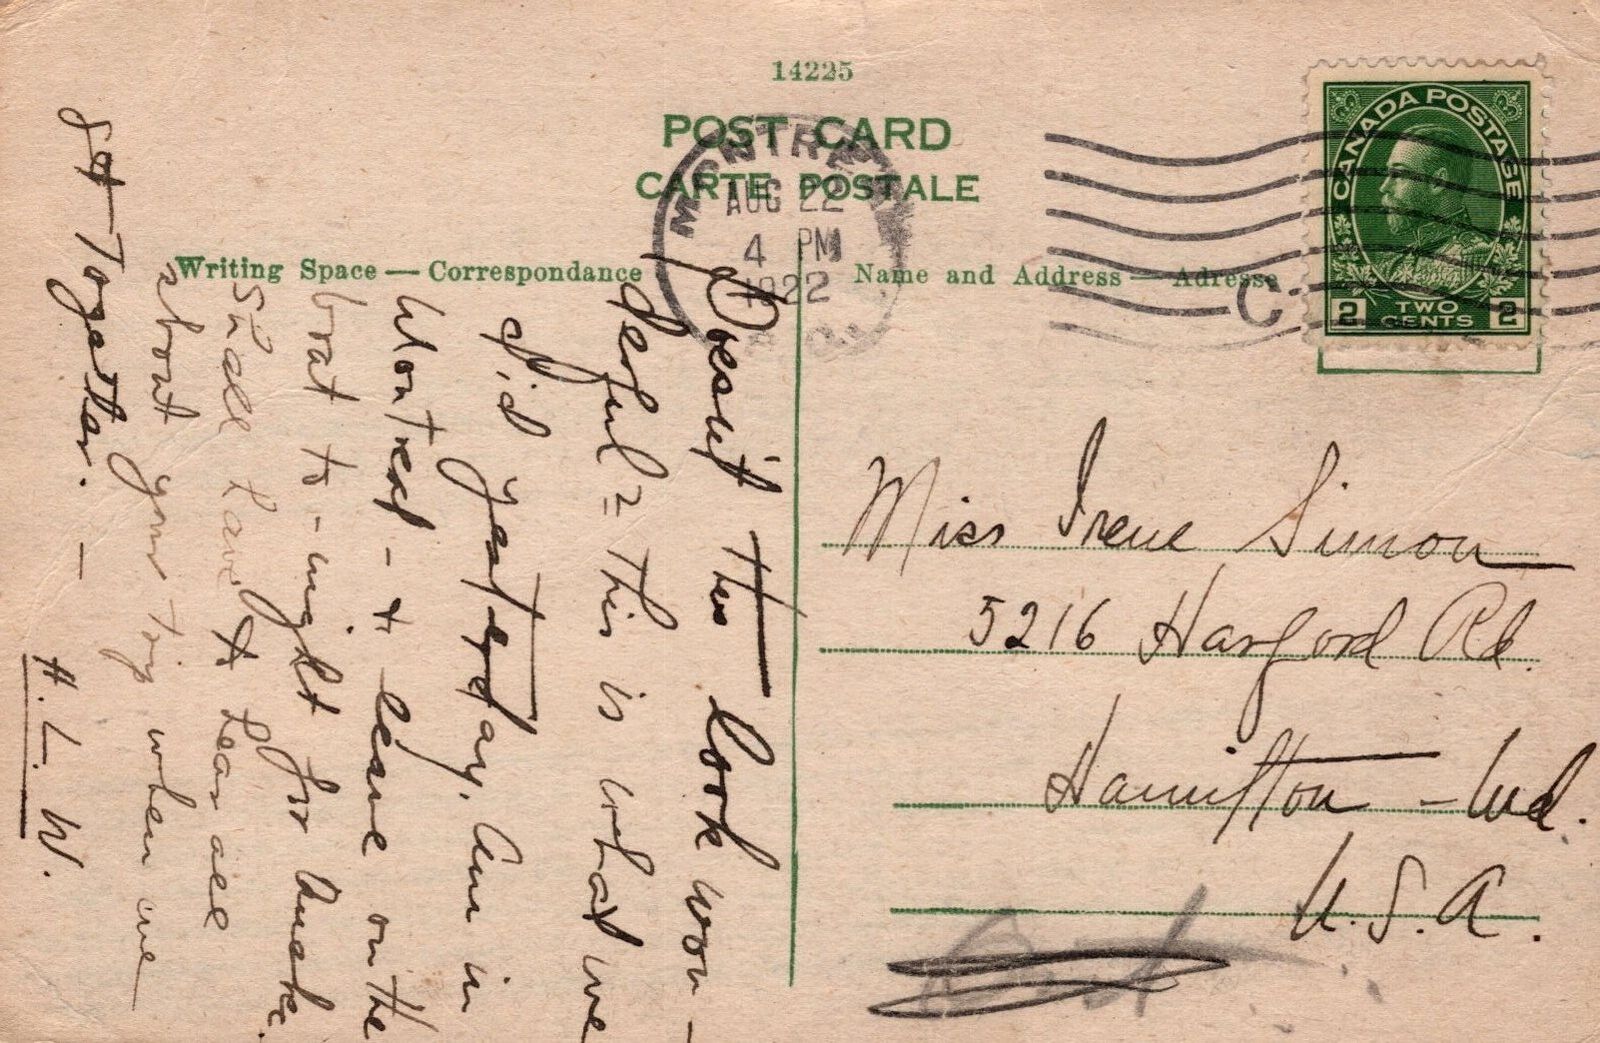 14225
POST CARD
CARTE POSTALE
MONTREAL
AUG 22
4 PM
1922
Writing Space — Correspondance
Name and Address — Adresse
C
CANADA POSTAGE
2 TWO CENTS 2
Doesn't this look won-
derful = This is what we
did yesterday. Am in
Montreal - & leave on the
boat to-night for Quebec.
Shall have to hear all
about your trip when we
get together. —
H. L. W.
Miss Irene Simon
5216 Harford Rd.
Hamilton - Md.
U. S. A.